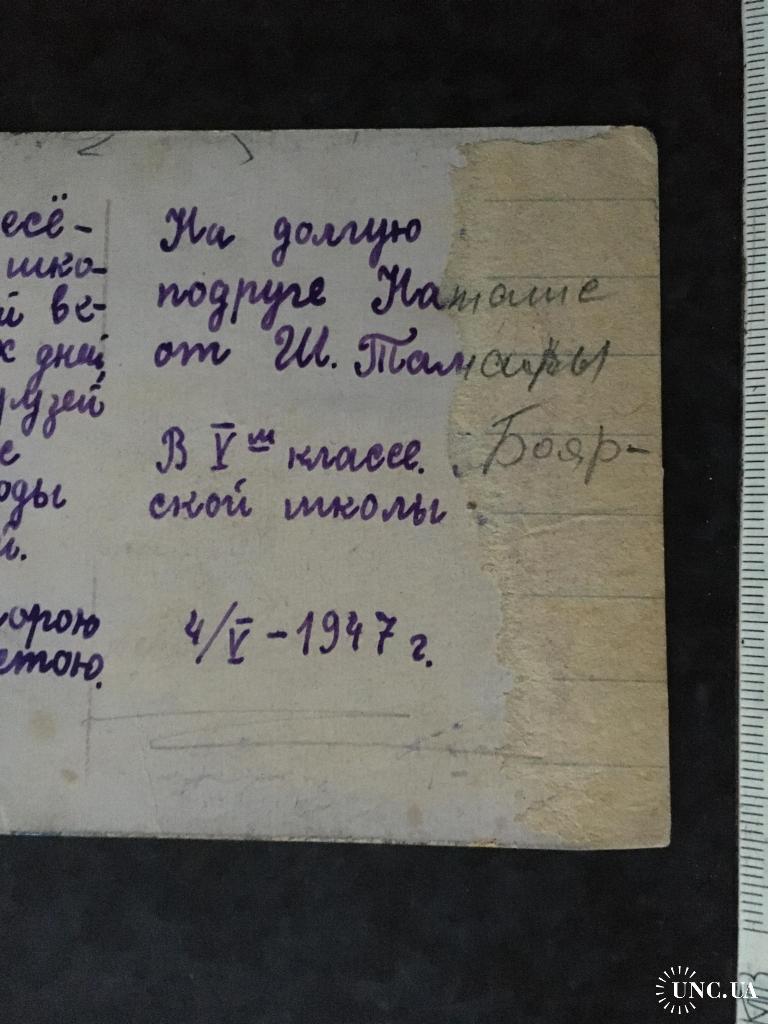 есё-
шко-
й ве-
х дней,
рузей
е
оды
й.
орою
етою.
На долгую
подруге Наталие
от Ш. Тамары
В V м классе. Бояр-
ской школы
4/V - 1947 г.
UNC.UA